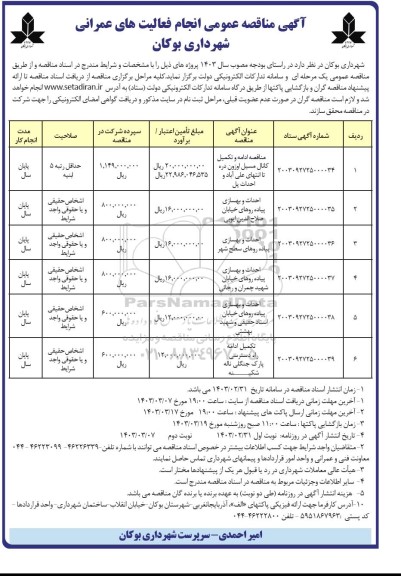 آگهی مناقصه عمومی انجام فعالیت های عمرانی
شهرداری بوکان
شهرداری بوکان در نظر دارد در راستای بودجه مصوب سال ۱۴۰۳ پروژه های ذیل را با مشخصات و شرایط مندرج در اسناد مناقصه و از طریق
مناقصه عمومی یک مرحله ای و سامانه تدارکات الکترونیکی دولت برگزار نماید.کلیه مراحل برگزاری مناقصه از دریافت اسناد مناقصه تا ارائه
پیشنهاد مناقصه گران و بازگشایی پاکتها از طریق درگاه سامانه تدارکات الکترونیکی دولت (ستاد) به آدرس www.setadiran.ir انجام خواهد
شد و لازم است مناقصه گران در صورت عدم عضویت قبلی، مراحل ثبت نام در سایت مذکور و دریافت گواهی امضای الکترونیکی را جهت شرکت
در مناقصه محقق سازند.
ردیف شماره آگهی ستاد عنوان آگهی مناقصه مبلغ تأمین اعتبار / برآورد سپرده شرکت در مناقصه صلاحیت مدت انجام کار
۱ ۲۰۰۳۰۹۲۷۲۵۰۰۰۰۳۴ مناقصه ادامه و تکمیل کانال مسیل اوزون دره تا انتهای علی آباد و احداث پل ۲۰,۰۰۰,۰۰۰,۰۰۰ریال ۲۲,۹۸۶,۰۴۶,۵۳۵ریال ۱,۱۴۹,۰۰۰,۰۰۰ ریال حداقل رتبه ۵ ابنیه پایان سال
۲ ۲۰۰۳۰۹۲۷۲۵۰۰۰۰۳۵ احداث و بهسازی پیاده روهای خیابان صلاح الدین ایوبی ۱۶,۰۰۰,۰۰۰,۰۰۰ریال ۸۰۰,۰۰۰,۰۰۰ ریال اشخاص حقیقی و یا حقوقی واجد شرایط پایان سال
۳ ۲۰۰۳۰۹۲۷۲۵۰۰۰۰۳۶ احداث و بهسازی پیاده روهای سطح شهر ۱۶,۰۰۰,۰۰۰,۰۰۰ریال ۸۰۰,۰۰۰,۰۰۰ ریال اشخاص حقیقی و یا حقوقی واجد شرایط پایان سال
۴ ۲۰۰۳۰۹۲۷۲۵۰۰۰۰۳۷ احداث و بهسازی پیاده روهای خیابان شهید چمران و رجائی ۱۶,۰۰۰,۰۰۰,۰۰۰ریال ۸۰۰,۰۰۰,۰۰۰ ریال اشخاص حقیقی و یا حقوقی واجد شرایط پایان سال
۵ ۲۰۰۳۰۹۲۷۲۵۰۰۰۰۳۸ احداث و بهسازی پیاده روهای خیابان استاد حقیقی و شهید بهشتی ۱۲,۰۰۰,۰۰۰,۰۰۰ریال ۶۰۰,۰۰۰,۰۰۰ ریال اشخاص حقیقی و یا حقوقی واجد شرایط پایان سال
۶ ۲۰۰۳۰۹۲۷۲۵۰۰۰۰۳۹ تکمیل ادامه راه دسترسی پارک جنگلی ناله شکینه ۱۲,۰۰۰,۰۰۰,۰۰۰ ریال ۶۰۰,۰۰۰,۰۰۰ ریال اشخاص حقیقی و یا حقوقی واجد شرایط پایان سال
۱- زمان انتشار اسناد مناقصه در سامانه تاریخ ۱۴۰۳/۰۲/۳۱ می باشد.
۱- آخرین مهلت زمانی دریافت اسناد مناقصه از سایت : ساعت ۱۹:۰۰ مورخ ۱۴۰۳/۰۳/۰۷
۲- آخرین مهلت زمانی ارسال پاکت های پیشنهاد : ساعت ۱۹:۰۰ مورخ ۱۴۰۳/۰۳/۱۷
۳- زمان بازگشایی پاکتها : ساعت ۱۱:۰۰ صبح روزشنبه مورخ ۱۴۰۳/۰۳/۱۹
۴- تاریخ انتشار آگهی در روزنامه: نوبت اول ۱۴۰۳/۰۲/۳۱ نوبت دوم ۱۴۰۳/۰۳/۰۷
۲- متقاضیان واجد شرایط جهت کسب اطلاعات بیشتر در خصوص اسناد مناقصه می توانند با شماره تلفن ۴۶۲۲۶۳۳۹- ۰۴۴-۴۶۲۲۳۰۹۹
معاونت فنی و عمرانی و واحد امور قراردادها و پیمانهای شهرداری تماس حاصل نمایند.
۳- هیأت عالی معاملات شهرداری در رد یا قبول هر یک از پیشنهادها مختار است.
۴- سایر اطلاعات وجزئیات مربوط به مناقصه در اسناد مناقصه مندرج است.
۵- هزینه انتشار آگهی در روزنامه (طی دو نوبت) به عهده برنده یا برنده گان مناقصه می باشد.
۱۰-آدرس کارفرما جهت ارائه فیزیکی پاکتهای «الف»، آذربایجانغربی-شهرستان بوکان-خیابان انقلاب-ساختمان شهرداری- واحد قراردادها -
کد پستی ۵۹۵۱۸۶۷۹۶۳- تلفن ۰۴۴-۴۶۲۲۲۸۰۰
امیر احمدی- سرپرست شهرداری بوکان